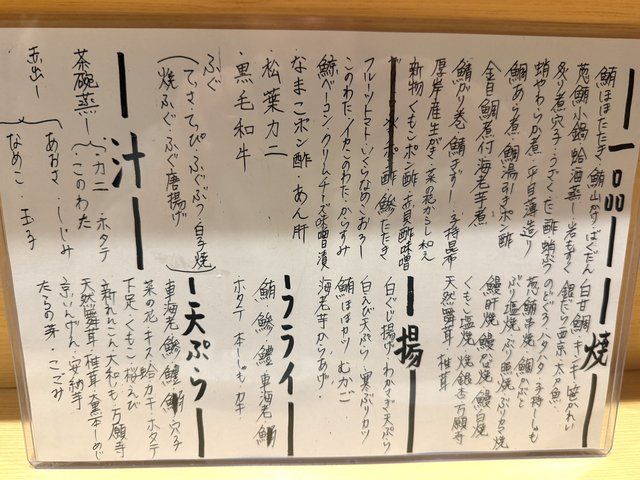 一品
鮪ほほたたき 鮪山かけ ばくだん
葱鮪小鍋 蛤酒蒸し 岩もずく
炙り煮穴子・うざく た酢 蛸ぶつ
蛸やわらか煮 平目薄造り
鯛あら煮 鯛湯引きポン酢
金目鯛煮付 海老芋煮
鯖がり巻 鯖きずし 子持昆布
厚岸産生がき・菜の花からし和え
新物くもこポン酢 赤貝酢味噌
ポン酢 鯵たたき
フルーツトマト・いくらなめこおろし
このわた・イカこのわた・からすみ
鯨ベーコン・クリームチーズ味噌漬
なまこポン酢・あん肝
・松葉カニ
・黒毛和牛
ふぐ
てっさ・てっぴ・ふぐぶつ 白子焼
焼ふぐ・ふぐ唐揚げ
汁
茶碗蒸し
・カニ ・ホタテ
・このわた
赤出し
あおさ・しじみ
なめこ・玉子
焼
白甘鯛 きんき 笹かれい
銀だら西京 太刀魚
のどぐろ ハタハタ 子持ししゃも
葱鮪串焼 鯛かぶと
ぶり塩焼 ぶり照焼 ぶりカマ焼
鰻肝焼 鰻かば焼 鰻白焼
くもこ塩焼 焼銀杏 万願寺
天然舞茸 椎茸
揚
白ぐじ揚げ・わかさぎ天ぷら
白えび天ぷら・寒ぶりカツ
鮪ほほカツ むかご
海老芋からあげ・
フライ
鮪 鯵 鱧 車海老
ホタテ 本ししゃも カキ
天ぷら
車海老 鯵 鱧 穴子
菜の花 キス 蛤 カキ ホタテ
下足 くもこ 桜えび
新れんこん 大和いも 万願寺
天然舞茸 椎茸 大黒本しめじ
京いんげん 安納芋
たらの芽・こごみ